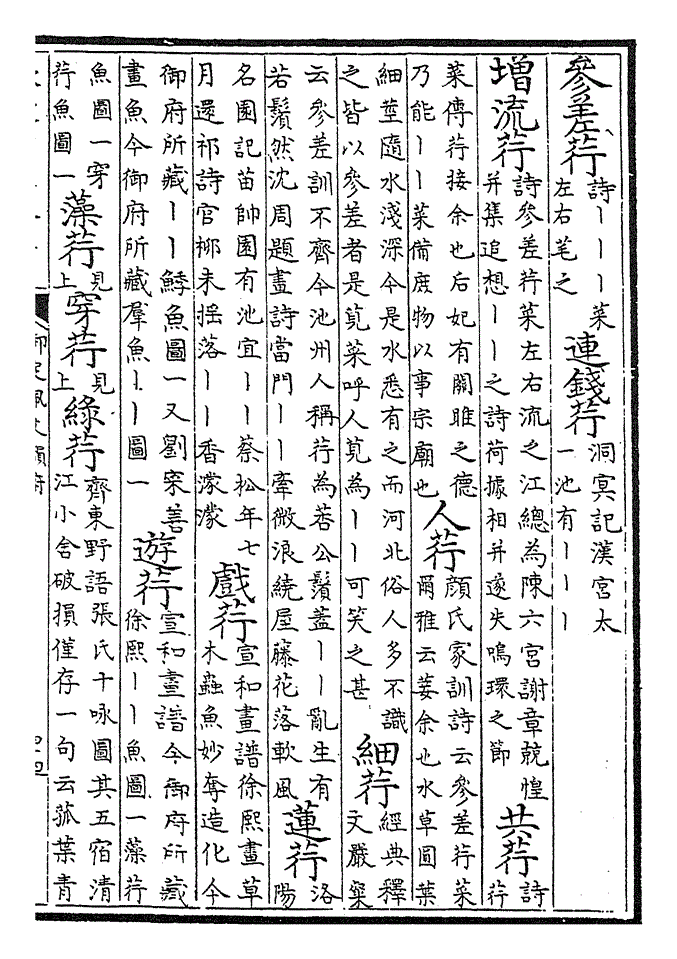 參差荇
詩丨丨丨菜
左右芼之
連錢荇
洞冥記漢宮太
一池有丨丨丨
增流荇
詩參差荇菜左右流之江總為陳六宮謝章兢惶
并集追想丨丨之詩荷據相并遂失鳴環之節
共荇
詩
荇
菜傳荇接余也后妃有關雎之德
乃能丨丨菜備庶物以事宗廟也
人荇
顏氏家訓詩云參差荇菜
爾雅云菨余也水草圓葉
細莖隨水淺深今是水悉有之而河北俗人多不識
之皆以參差者是莧菜呼人莧為丨丨可笑之甚
細荇
經典釋
文嚴粲
云參差訓不齊今池州人稱荇為莕公鬚蓋丨丨亂生有
若鬚然沈周題畫詩當門丨丨牽微浪繞屋藤花落軟風
蓮荇
洛
陽
名園記苗帥園有池宜丨丨蔡松年七
月還祁詩官柳未揺落丨丨香濛濛
戲荇
宣和畫譜徐熙畫草
木蟲魚妙奪造化今
御府所藏丨丨鯚魚圖一又劉寀善
畫魚今御府所藏羣魚丨丨圖一
遊荇
宣和畫譜今御府所藏
徐熙丨丨魚圖一藻荇
魚圖一穿
荇魚圖一
藻荇
見
上
穿荇
見
上
綠荇
齊東野語張氏十咏圖其五宿清
江小舍破損僅存一句云菰葉青